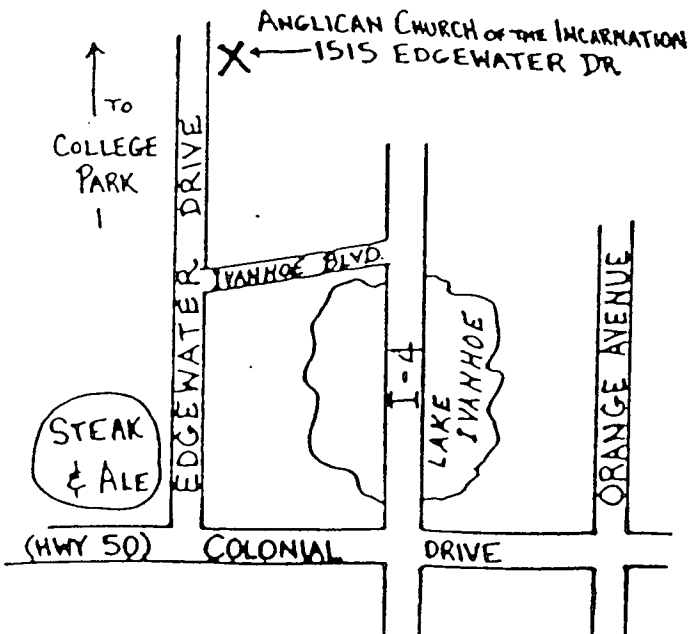 ANGLICAN CHURCH OF THE INCARNATION
X ← 1515 EDGEWATER DR
↑ TO
COLLEGE
PARK
EDGEWATER DRIVE
IVANHOE BLVD.
I-4
LAKE
IVANHOE
ORANGE AVENUE
STEAK
& ALE
(HWY 50) COLONIAL DRIVE